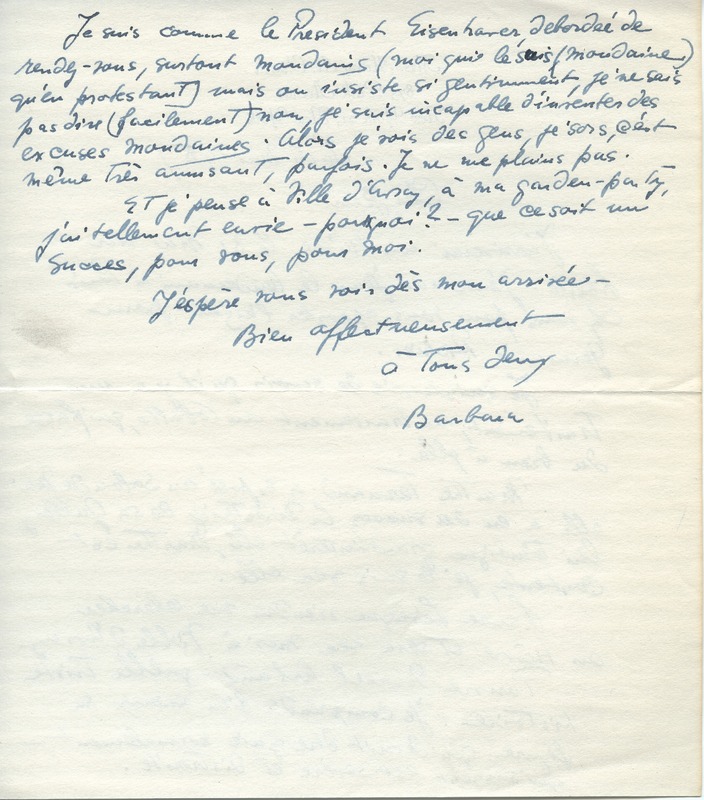 Je suis comme le Président Eisenhower, débordée de
rendez-vous, surtout mondains (moi qui le suis (mondaine)
qu'en protestant) mais on insiste si gentiment, je ne sais
pas dire (facilement) non, je suis incapable d'inventer des
excuses mondaines. Alors je vois des gens, je sors, c'est
même très amusant, parfois. Je ne me plains pas.
Et je pense à Ville d'Avray, à ma garden-party,
j'ai tellement envie - pourquoi? - que ce soit un
succès, pour vous, pour moi.
J'espère vous voir dès mon arrivée -
Bien affectueusement
à Tous deux
Barbara